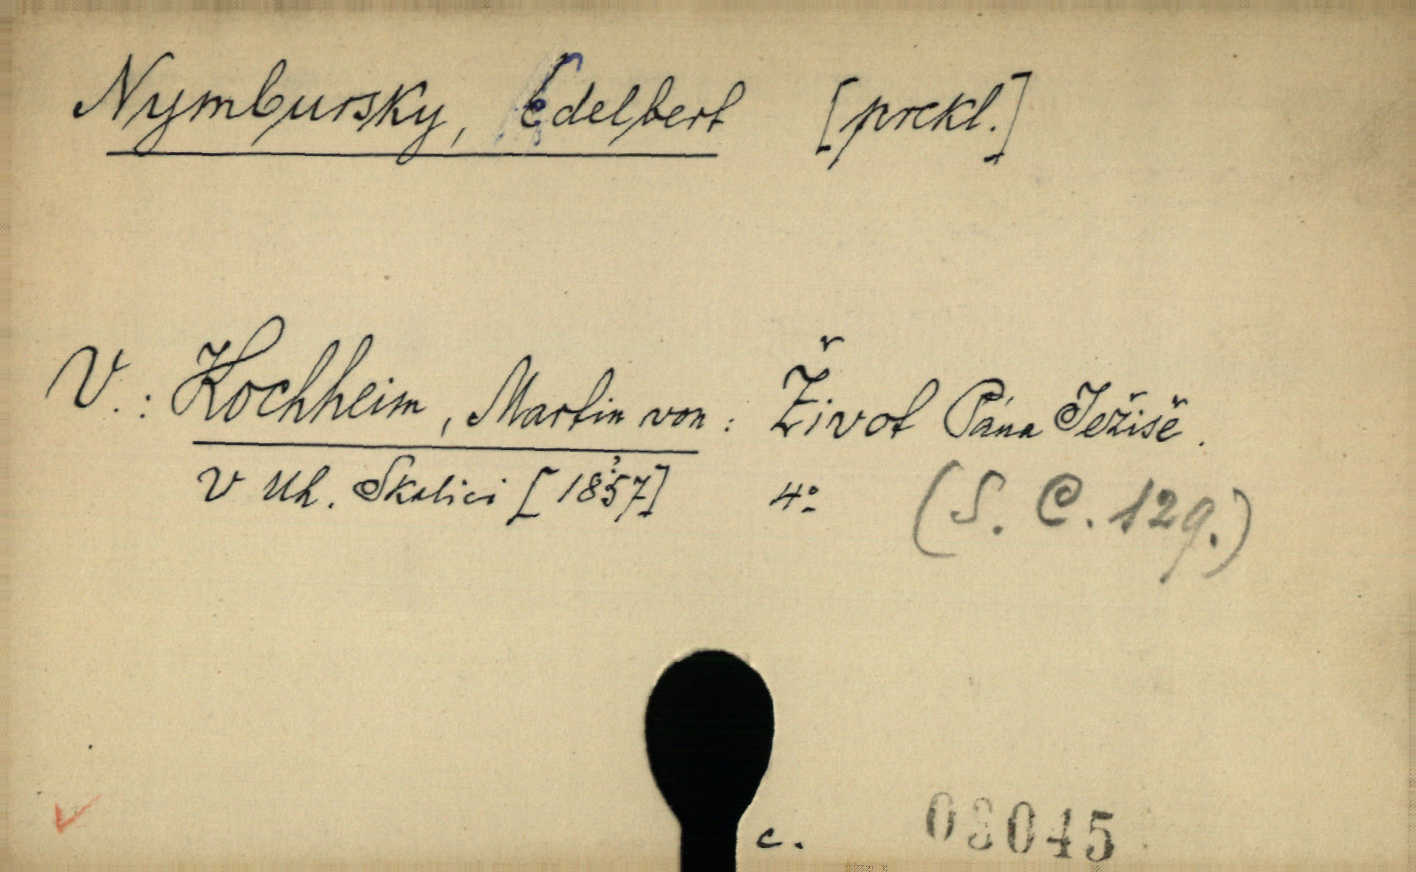 Nymbursky, Edelbert [prekl.]
V.: Kochheim, Martin von: Život Pána Ježiše.
V Uh. Skalici [1857] 4° (S. C. 129.)
c. 03045